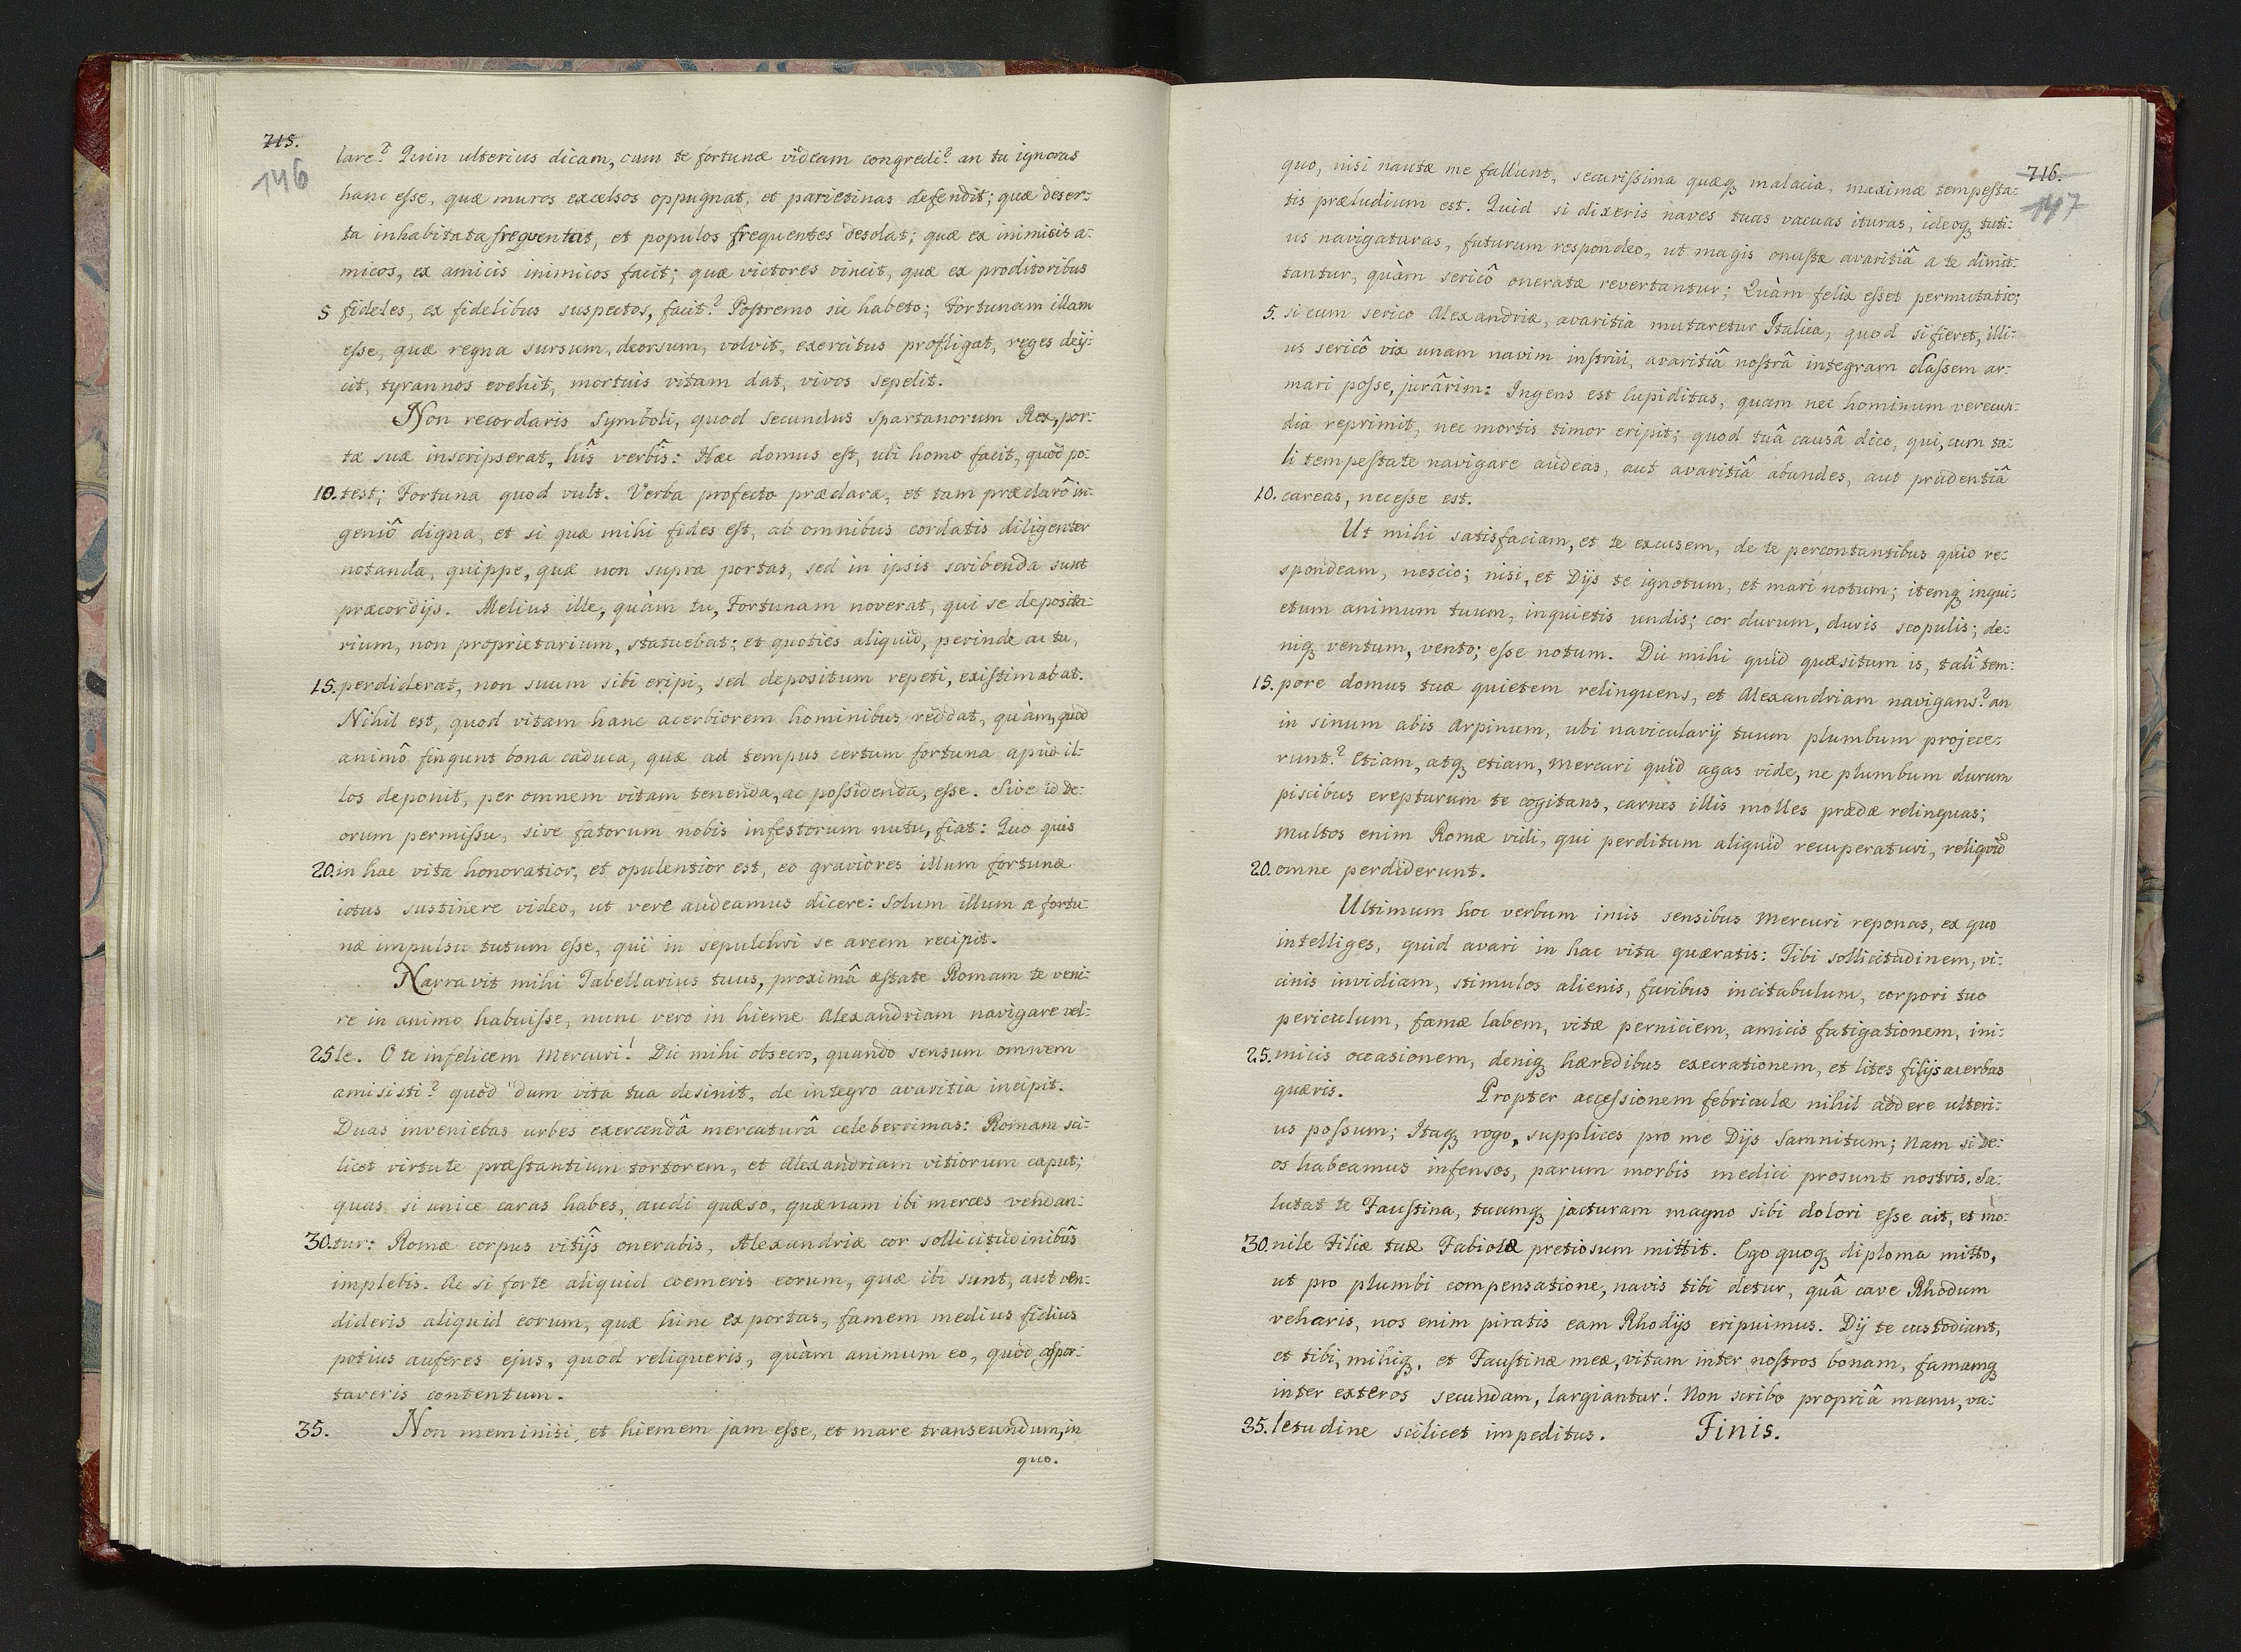 715.
146
lare? Quin ulterius dicam, cum te fortunæ videam congredi? an tu ignoras
hanc esse, quæ muros excelsos oppugnat, et parietinas defendit; quæ deser-
ta inhabitata frequentat, et populos frequentes desolat; quæ ex inimicis a-
micos, ex amicis inimicos facit; quæ victores vincit, quæ ex proditoribus
5 fideles, ex fidelibus suspectos, facit? Postremo sic habeto; Fortunam illam
esse, quæ regna sursum, deorsum, volvit, exercitus profligat, reges deij-
cit, tyrannos evehit, mortuis vitam dat, vivos sepelit.
Non recordaris Symboli, quod secundus Spartanorum Rex, por-
tæ suæ inscripserat, hîs verbîs: Hæc domus est, ubi homo facit, quod po-
10. test; Fortuna quod vult. Verba profecto præclara, et tam præclarô in-
geniô digna, et si quæ mihi fides est, ab omnibus cordatis diligenter
notanda, quippe, quæ non supra portas, sed in ipsis scribenda sunt
præcordijs. Melius ille, quàm tu, Fortunam noverat, qui se deposita-
rium, non proprietarium, statuebat; et quoties aliquid, perinde ac tu,
15. perdiderat, non suum sibi eripi, sed depositum repeti, existimabat.
Nihil est, quod vitam hanc acerbiorem hominibus reddat, quàm, quod
animô fingunt bona caduca, quæ ad tempus certum fortuna apud il-
los deponit, per omnem vitam tenenda, ac possidenda, esse. Sive id de-
orum permissu, sive fatorum nobis infestorum nutu, fiat: Quo quis
20. in hac vita honoratior, et opulentior est, eo graviores illum fortunæ
ictus sustinere video, ut vere audeamus dicere: Solum illum a fortu-
næ impulsu tutum esse, qui in sepulchri se arcem recipit.
Narravit mihi Tabellarius tuus, proximâ æstate Romam te veni-
re in animo habuisse, nunc vero in hieme Alexandriam navigare vel-
25 le. O te infelicem Mercuri! Dic mihi obsecro, quando sensum omnem
amisisti? quod dum vita tua desinit, de integro avaritia incipit.
Duas inveniebas urbes exercendâ mercaturâ celeberrimas: Romam sci-
licet virtute præstantium tortorem, et Alexandriam vitiorum caput;
quas si unice caras habes, audi quæso, quænam ibi merces vendan-
30. tur: Romæ corpus vitijs onerabis, Alexandriæ cor sollicitudinibus
implebis. Ac si forte aliquid coemeris eorum, quæ ibi sunt, aut ven-
dideris aliquid eorum, quæ hinc exportas, famem medius fidius
potius auferes ejus, quod reliqueris, quàm animum eo, quod aspor-
taveris contentum.
35. Non meministi, et hiemem jam esse, et mare transeundum, in
quo.
716.
147
quo, nisi nautæ me fallunt, securissima quæq malacia, maximæ tempesta-
tis præludium est. Quid si dixeris naves tuas vacuas ituras, ideoq tuti-
us navigaturas, futurum respondeo, ut magis onustæ avaritiâ a te dimit-
tantur, quàm sericô oneratæ revertantur; Quàm felix esset permutatio;
5. si cum serico Alexandriæ, avaritia mutaretur Italica, quod si fieret, illi-
us sericô vix unam navim instrui, avaritiâ nostrâ integram classem ar-
mari posse, jurârim: Ingens est cupiditas, quam nec hominum verecun-
dia reprimit, nec mortis timor eripit; quod tuâ causâ dico, qui, cum ta-
li tempestate navigare audeas, aut avaritiâ abundes, aut prudentiâ
10. careas, necesse est.
Ut mihi satisfaciam, et te excusem, de te percontantibus quid re-
spondeam, nescio; nisi, et Dijs te ignotum, et mari notum; itemq inqui-
etum animum tuum, inquietis undis; cor durum, duris scopulis; de-
niq ventum, vento; esse notum. Dic mihi quid quæsitum is, tali tem-
15. pore domus tuæ quietem relinquens, et Alexandriam navigans? an
in sinum abis Arpinum, ubi navicularij tuum plumbum projece-
runt? Etiam, atq etiam, Mercuri quid agas vide, ne plumbum durum
piscibus erepturum te cogitans, carnes illis molles prædæ relinquas;
Multos enim Romæ vidi, qui perditum aliquid recuperaturi, reliquid
20. omne perdiderunt.
Ultimum hoc verbum imis sensibus Mercuri reponas, ex quo
intelliges, quid avari in hac vita quæratis: Tibi sollicitudinem, vi-
cinis invidiam, stimulos alienis, furibus incitabulum, corpori tuo
periculum, famæ labem, vitæ perniciem, amicis fatigationem, ini-
25. micis occasionem, deniq hæredibus execrationem, et lites filijs acerbas
quæris. Propter accessionem febriculæ nihil addere ulteri-
us possum; Itaq rogo, supplices pro me Dijs Samnitum; Nam si De-
os habeamus infensos, parum morbis medici prosunt nostris. Sa-
lutat te Faustina, tuamq jacturam magno sibi dolori esse ait, et mo-
30. nile Filiæ tuæ Fabiolæ pretiosum mittit. Ego quoq diploma mitto,
ut pro plumbi compensatione, navis tibi detur, quâ cave Rhodum
veharis, nos enim piratis eam Rhodijs eripuimus. Dij te custodiant,
et tibi, mihiq, et Faustinæ meæ, vitam inter nostros bonam, famamq
inter exteros secundam, largiantur! Non scribo propriâ manu, va-
35. letudine scilicet impeditus. Finis.